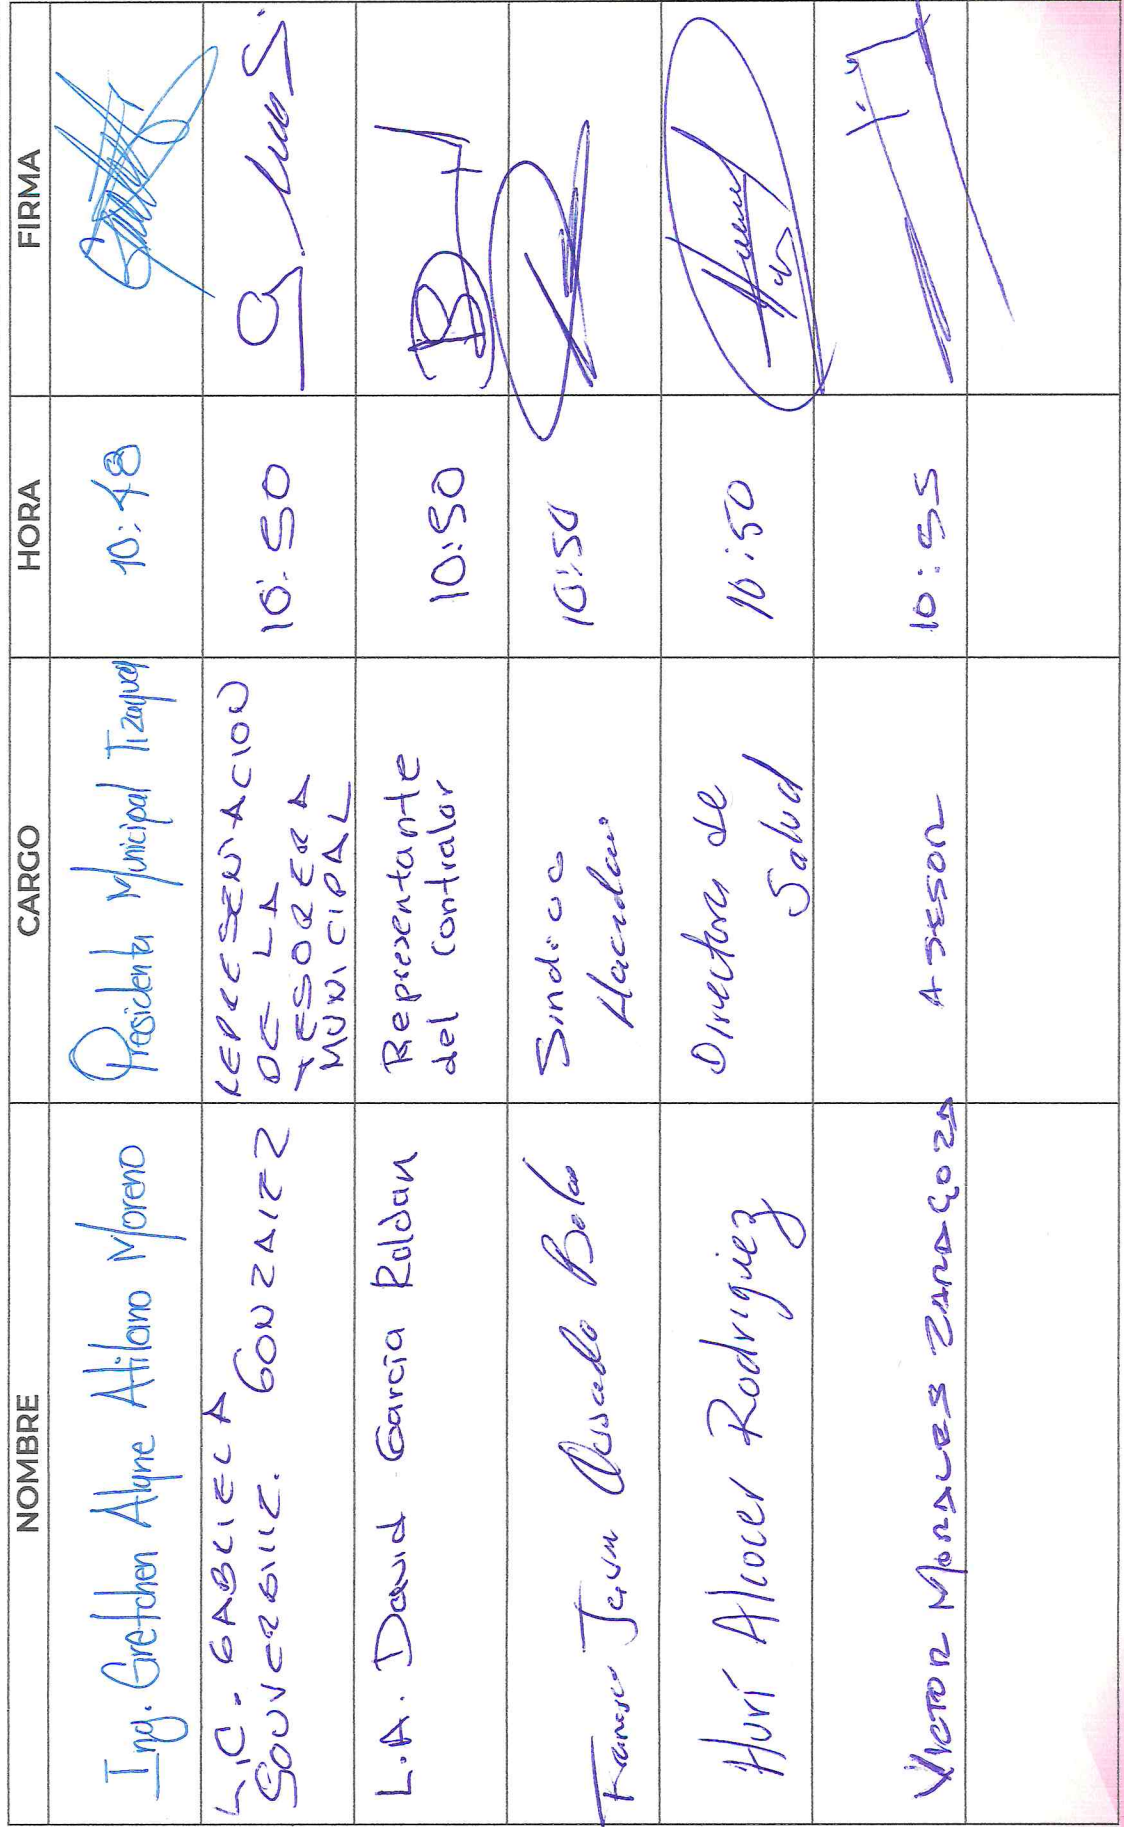 NOMBRE CARGO HORA FIRMA
Ing. Gretchen Alyne Atilano Moreno Presidenta Municipal Tizayuca 10:48
LIC. GABRIELA
GONZALEZ
REPRESENTACION
DE LA
TESORERA
MUNICIPAL
10:50
L.A. David García Roldan
Representante
del Contralor
10:50
Javier
Sindico
10:50
Hurí Alcocer Rodriguez
de
Salud
10:50
VICTOR MORALES ZARAGOZA ASESOR 10:55